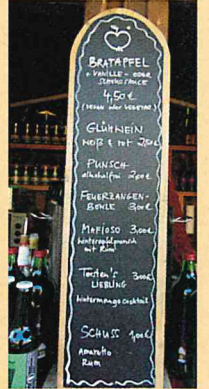 BRATAPFEL
+ VANILLE- ODER
SCHOKOSAUCE
4,50€
(VEGAN oder VEGETAR)
GLÜHWEIN
WEIß & rot 2,50€
PUNSCH
alkoholfrei 2,00€
FEUERZANGEN-
BOWLE 3,00€
MAFIOSO 3,00€
hinterapfelpunsch
mit Rum
Torsten's 3,00€
LIEBLING
hintermangococktail
SCHUSS 1,00€
Amaretto
Rum